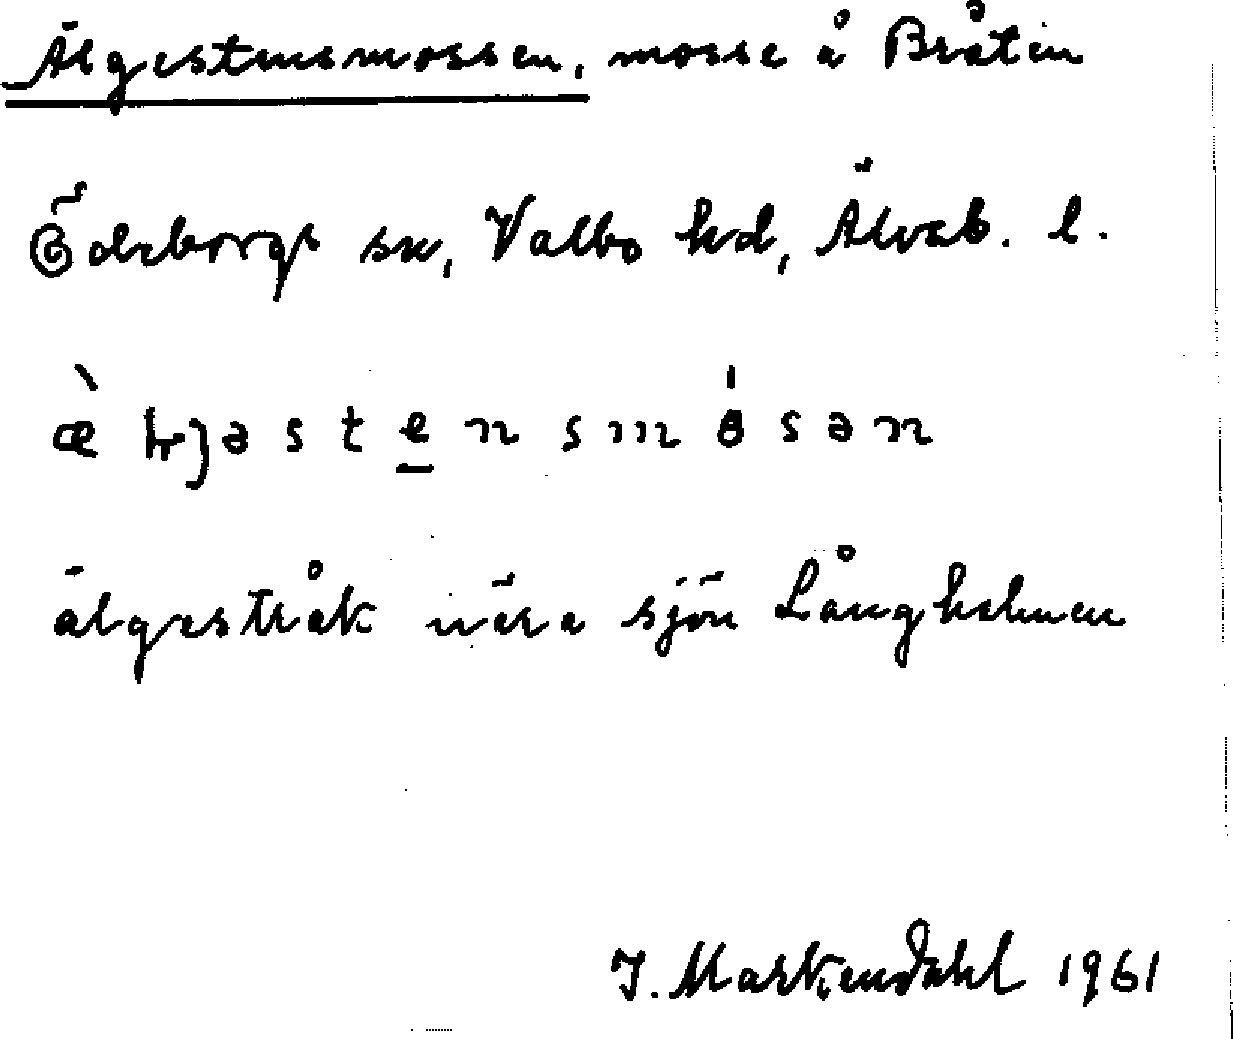 Älgestensmossen, mosse å Bråten
Ödeborgs sn, Valbo hd, Älvsb. l.
älgestråk nära sjön Långhalmen
J. Markendahl 1961